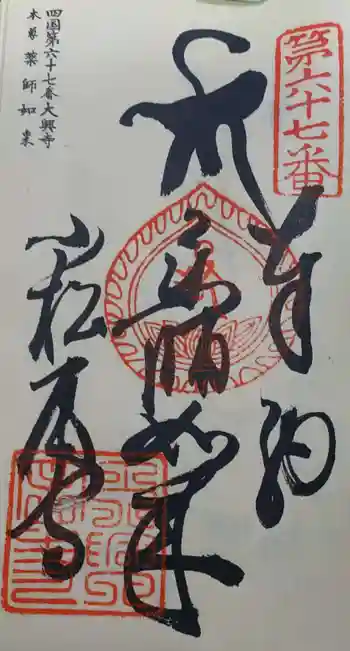 第六十七番
奉納
薬師如来
小松尾寺
四国第六十七番大興寺
本尊 薬師如来